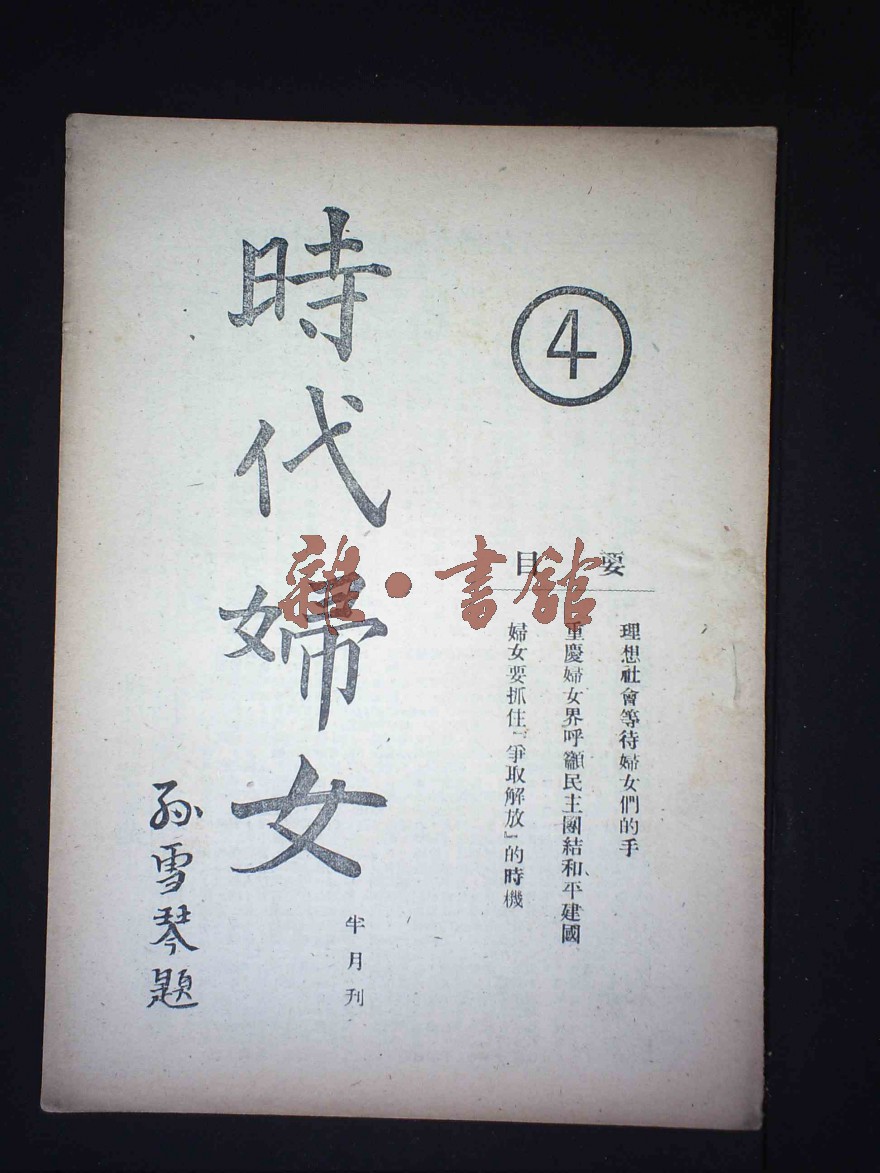 ④
要目
理想社會等待婦女們的手
重慶婦女界呼籲民主團結和平建國
婦女要抓住『爭取解放』的時機
時代婦女
半月刊
孫雪琴題
雜·書館